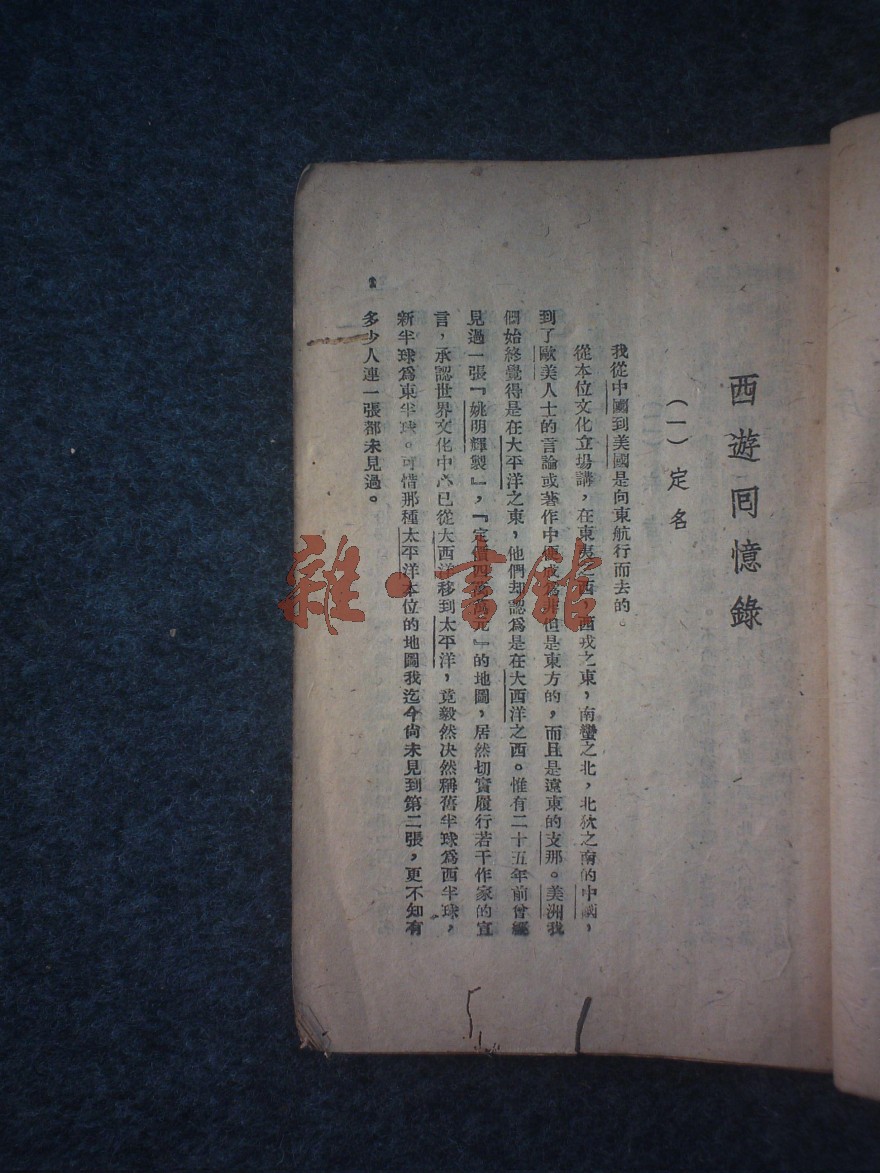 西遊囘憶錄
（一）定名
我從中國到美國是向東航行而去的。
從本位文化立場講，在東夷之西，西戎之東，南蠻之北，北狄之南的中國，
到了歐美人士的言論或著作中便成爲非但是東方的，而且是遠東的支那。美洲我
們始終覺得是在大平洋之東，他們却認爲是在大西洋之西。惟有二十五年前曾經
見過一張『姚明輝製』，『定價四 萬元』的地圖，居然切實履行若干作家的宣
言，承認世界文化中心已從大西洋移到太平洋，竟毅然决然稱舊半球爲西半球，
新半球爲東半球。可惜那種太平洋本位的地圖我迄今尙未見到第二張，更不知有
多少人連一張都未見過。
雜·書館